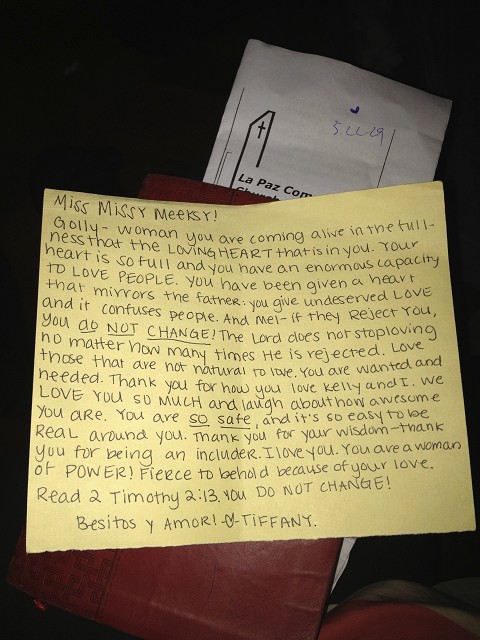 5.22.29
La Paz Com
Church
Miss Missy Meeksy!
Golly - woman you are coming alive in the full-
ness that the LOVING HEART that is in you. Your
heart is so full and you have an enormous capacity
to LOVE PEOPLE. You have been given a heart
that mirrors the father: you give undeserved LOVE
and it confuses people. And Mel- if they Reject YOU,
YOU do NOT CHANGE! The Lord does not stop loving
no matter how many times He is rejected. Love
those that are not natural to love. You are wanted and
needed. Thank you for how you love Kelly and I. We
LOVE YOU SO MUCH and laugh about how awesome
YOU ARE. YOU are so safe, and it's so easy to be
REAL around you. Thank you for your wisdom - thank
you for being an includer. I love you. You are a woman
of POWER! Fierce to behold because of your love.
Read 2 Timothy 2:13. YOU DO NOT CHANGE!
Besitos y Amor! - TIFFANY.